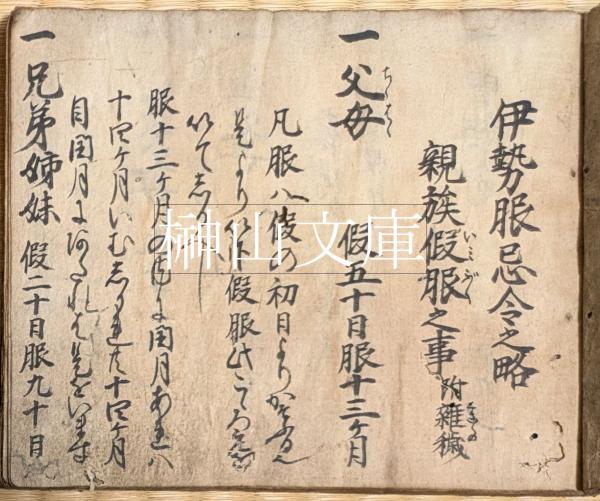 伊勢服忌令之略
親族假服之事 附雜穢
一 父母 假五十日服十三ヶ月
凡服ハ假の初日よりかぞふる也
是より以下假服此ごとく
以てしるべし
服十三ヶ月の内に閏月あれハ
十四ヶ月いむ
十四ヶ月
目閏月に
一 兄弟姉妹 假二十日服九十日
榊山文庫